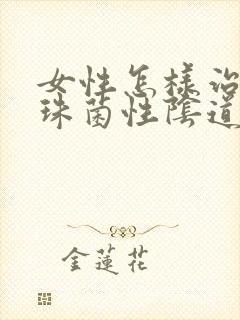 女性怎樣
珠菌性陰道
金蓮花